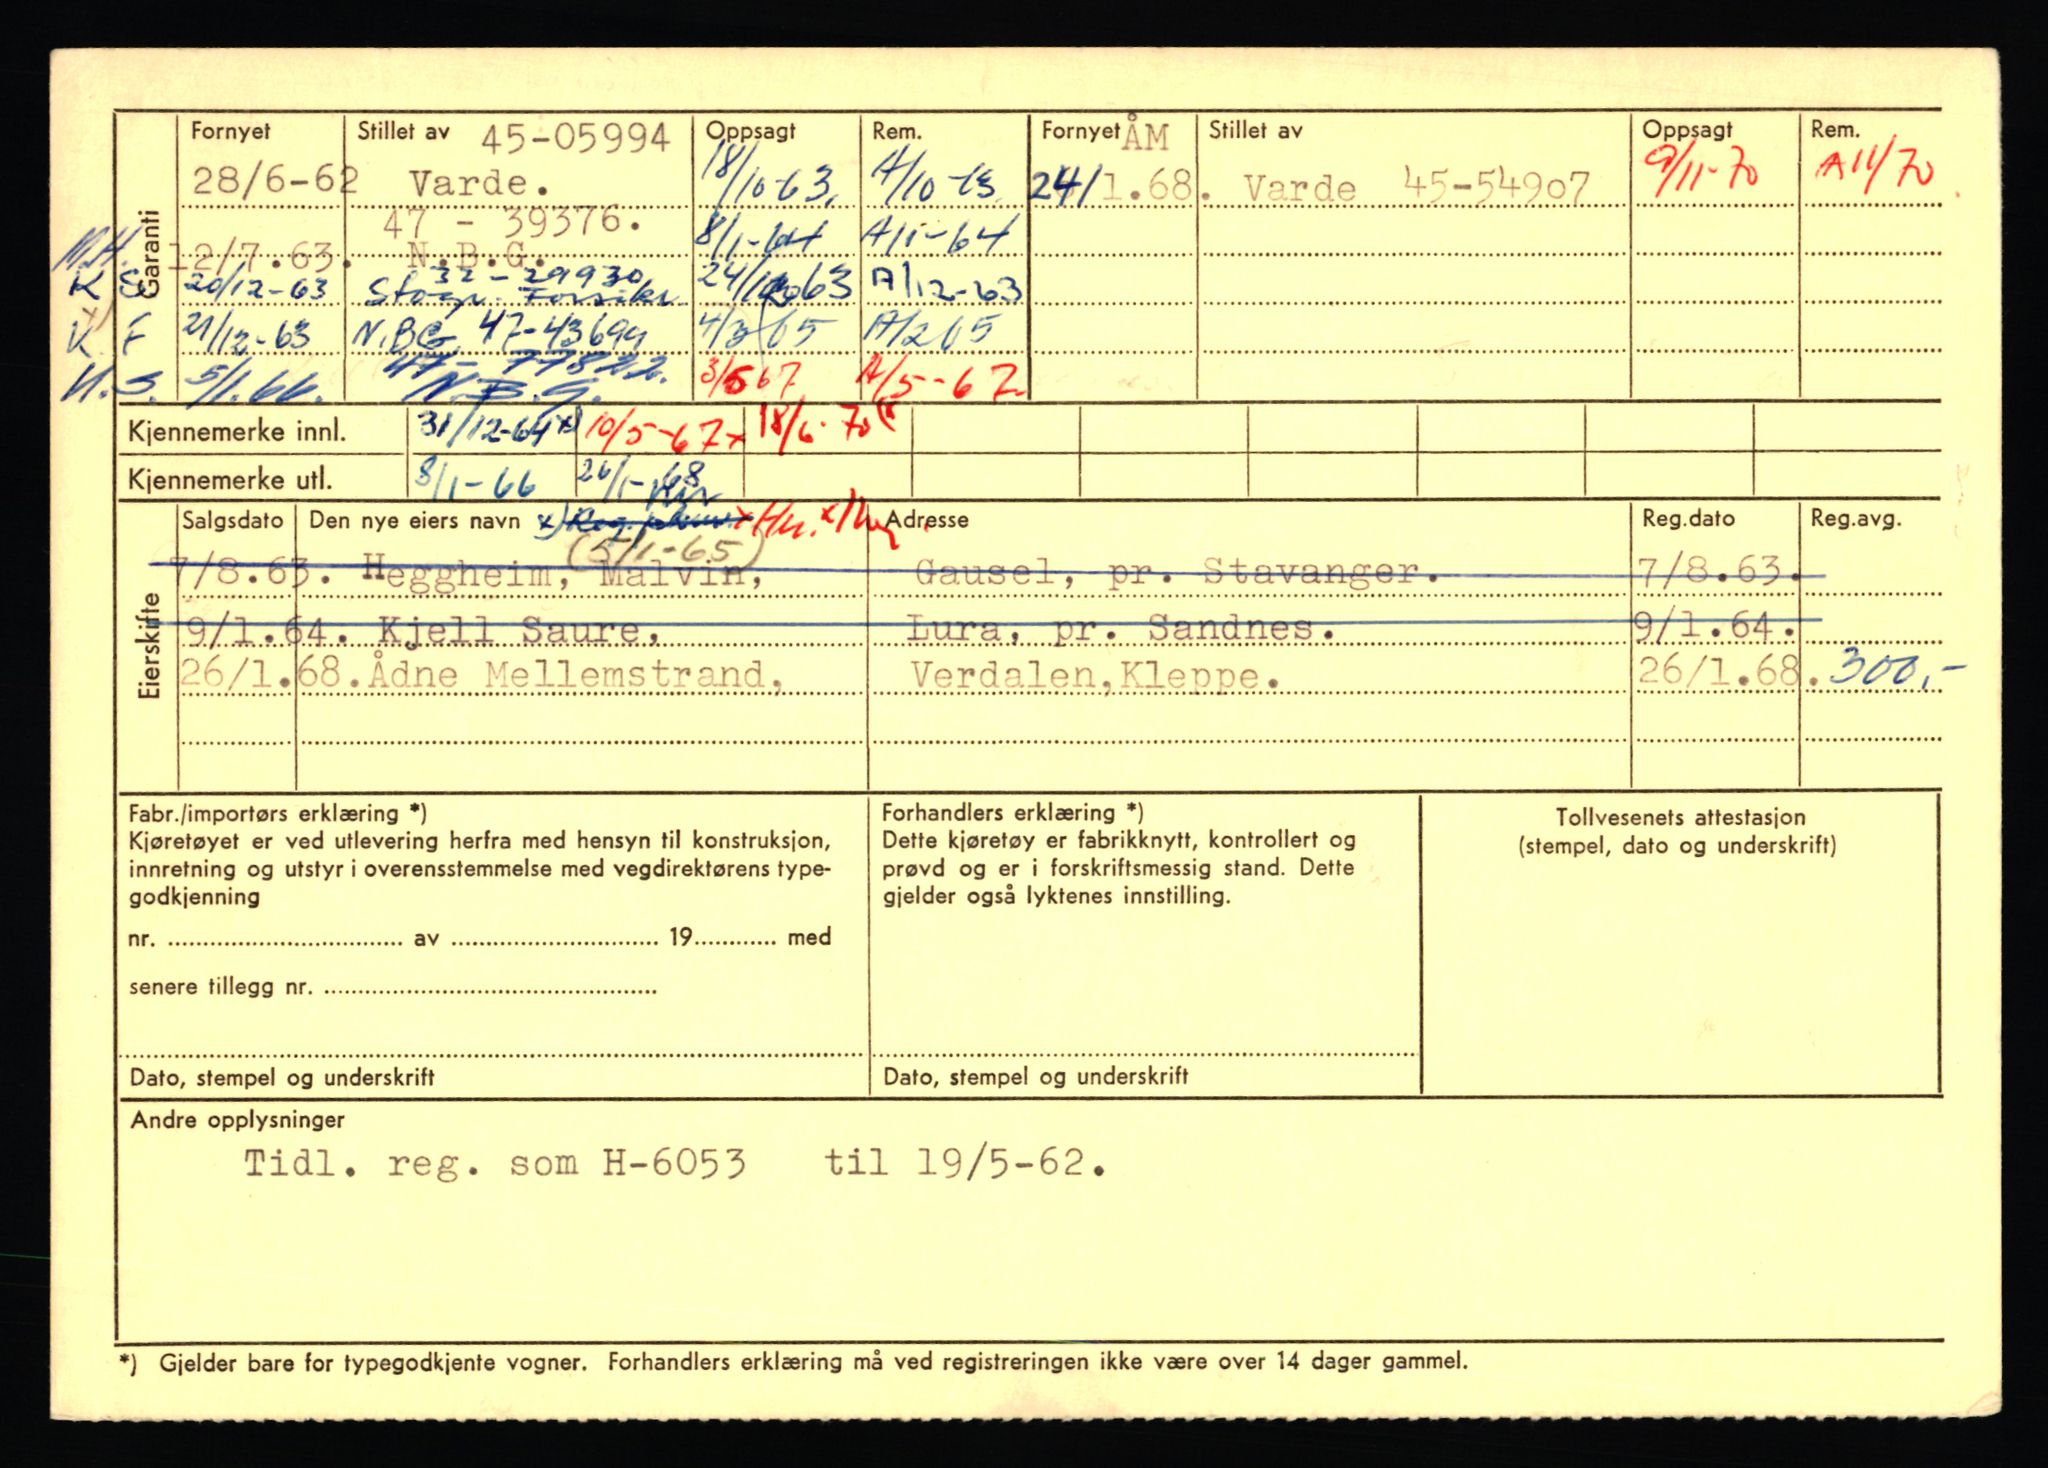 Fornyet Stillet av 45-05994 Oppsagt Rem. Fornyet ÅM Stillet av Oppsagt Rem.
28/6-62 Varde. 18/10-63. A/10-63 24/1.68. Varde 45-54907 9/11-70 A11/70
47 - 39376.
12/7.63. N.B.G. 8/1-64 A/1-64
Garanti
32-29930
K S 20/12-63 24/12 63 A/12-63
K F 21/12-63 N.B.G. 47-43699 4/2 65 A/2 65
47-77822.
H.S. 5/1.66. N.B.G. 3/5 67 A/5-67
Kjennemerke innl. 31/12-64 x) 10/5-67 x 18/6-70
Kjennemerke utl. 8/1-66 26/1-68
Salgsdato Den nye eiers navn Adresse Reg.dato Reg.avg.
(5/1-65)
7/8.63. Heggheim, Malvin, Gausel, pr. Stavanger. 7/8.63.
9/1.64. Kjell Saure, Lura, pr. Sandnes. 9/1.64.
26/1.68. Ådne Mellemstrand, Verdalen,Kleppe. 26/1.68. 300,-
Eierskifte
Fabr./importørs erklæring *)
Kjøretøyet er ved utlevering herfra med hensyn til konstruksjon,
innretning og utstyr i overensstemmelse med vegdirektørens type-
godkjenning
nr. ........ av ........ 19........ med
senere tillegg nr. ........
Dato, stempel og underskrift
Forhandlers erklæring *)
Dette kjøretøy er fabrikknytt, kontrollert og
prøvd og er i forskriftsmessig stand. Dette
gjelder også lyktenes innstilling.
Dato, stempel og underskrift
Tollvesenets attestasjon
(stempel, dato og underskrift)
Andre opplysninger
Tidl. reg. som H-6053 til 19/5-62.
*) Gjelder bare for typegodkjente vogner. Forhandlers erklæring må ved registreringen ikke være over 14 dager gammel.